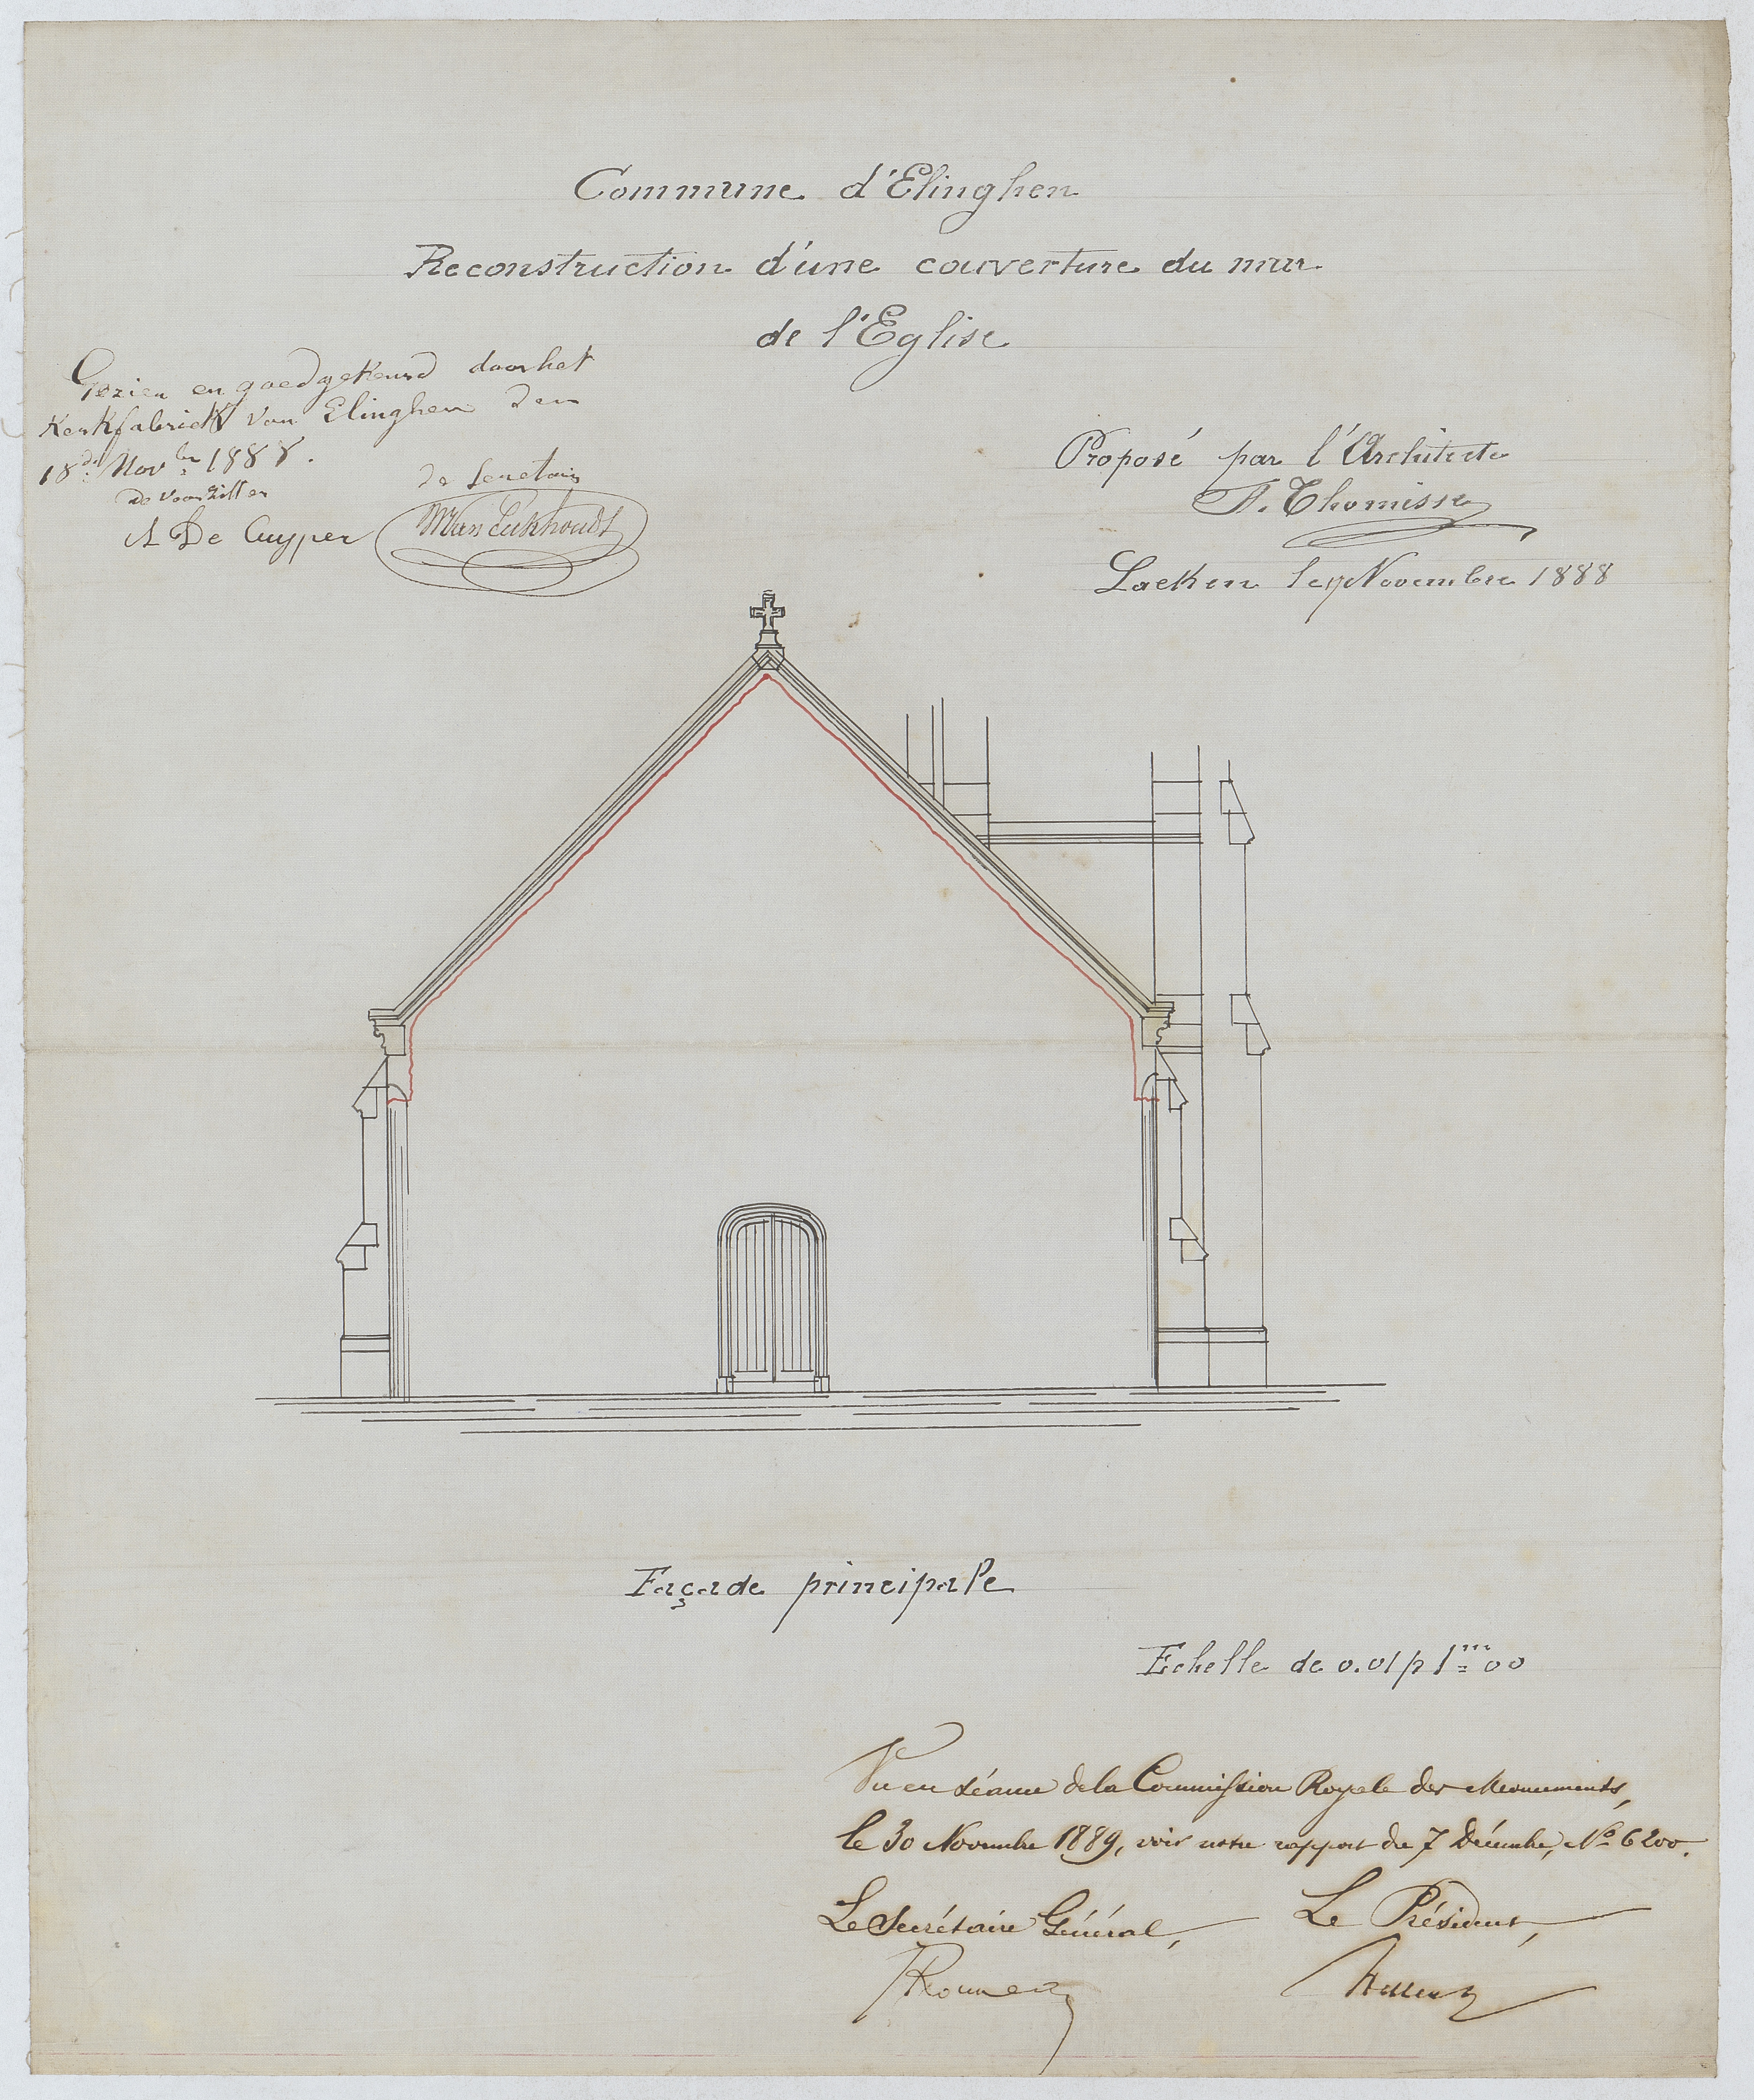 Commune d'Elinghen
Reconstruction d'une couverture du mur
de l'Eglise
Gezien en goedgekeurd door het
Kerkfabriek van Elinghen den
18de Novber 1888.
De Voorzitter
A De Cuyper
de Secretaris
M Van Eekhoudt
Proposé par l'Architecte
A. Thomisse
Laeken le 7 Novembre 1888
Façade principale
Echelle de 0.01 p 1m00
Vu en séance de la Commission Royale des Monuments,
le 30 Novembre 1889, voir notre rapport du 7 Décembre, No 6200.
Le Secrétaire Général,
Le Président,